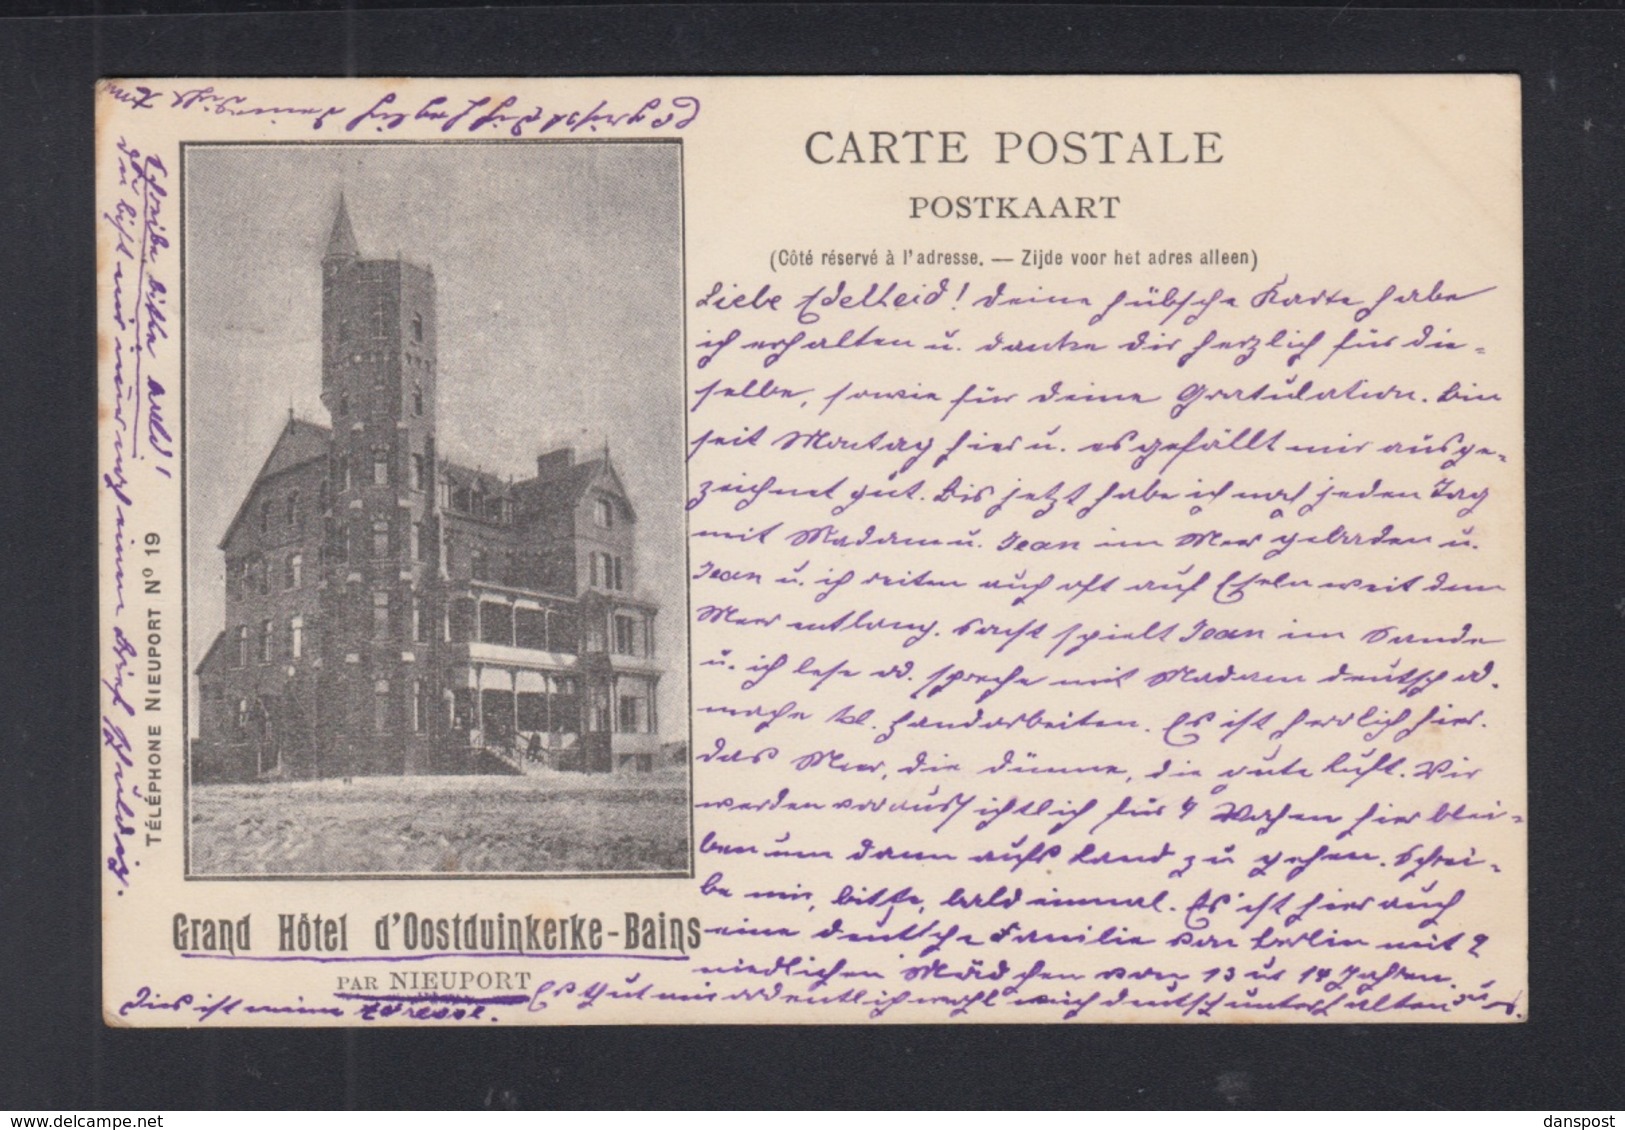 CARTE POSTALE
POSTKAART
(Côté réservé à l'adresse. — Zijde voor het adres alleen)
Liebe Edelheid! Deine hübsche Karte habe
ich erhalten u. danke dir herzlich für die-
selbe, sowie für deine Gratulation. Bin
seit Montag hier u. es gefällt mir ausge-
zeichnet gut. Bis jetzt habe ich noch jeden Tag
mit Madam u. Jean im Meer gebaden u.
Jean u. ich reiten auch oft auf Eseln weit dem
Meer entlang. Sonst spielt Jean im Sande
u. ich lese od. spreche mit Madam deutsch od.
mache kl. Handarbeiten. Es ist herrlich hier.
das Meer, die Dünne, die gute Luft. Wir
werden voraussichtlich für 4 Wochen hier blei-
ben um dann aufs Land zu gehen. Schrei-
be mir, bitte, bald einmal. Es ist hier auch
eine deutsche Familie von Berlin mit 2
niedlichen Mädchen von 13 u 14 Jahren.
Es thut mir ordentlich wohl mich deutsch unterhalten zu
Grand Hôtel d'Oostduinkerke-Bains
PAR NIEUPORT
Dies ist meine Adresse.
TÉLÉPHONE NIEUPORT Nº 19
Schreibe bitte bald!
du bist mir immer noch einen Brief schuldig.
danspost
delcampe.net